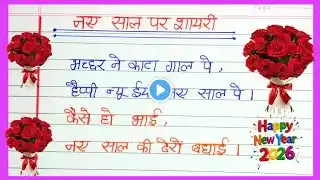 नए साल पर शायरी
मच्छर ने काटा गाल पे,
हैप्पी न्यू ईयर नए साल पे।
कैसे हो भाई,
नए साल की ढेरों बधाई।
Happy
New Year
2026